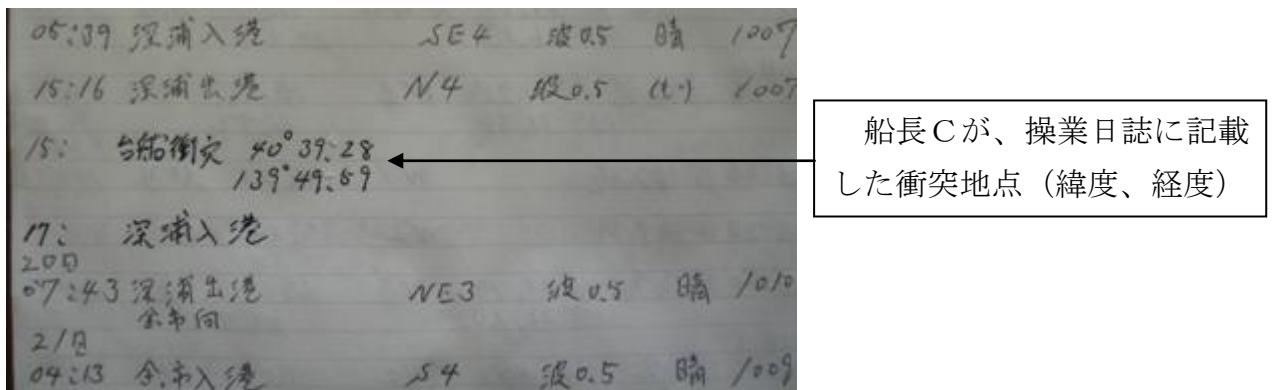 05:39 深浦入港 SE4 波0.5 晴 1007
15:16 深浦出港 N4 波0.5 (く・) 1007
15: 台船衝突 40°39.28
139°49.59
17: 深浦入港
20日
07:43 深浦出港 NE3 波0.5 晴 1010
余市向
21日
04:13 余市入港 S4 波0.5 晴 1009
船長Cが、操業日誌に記載
した衝突地点（緯度、経度）